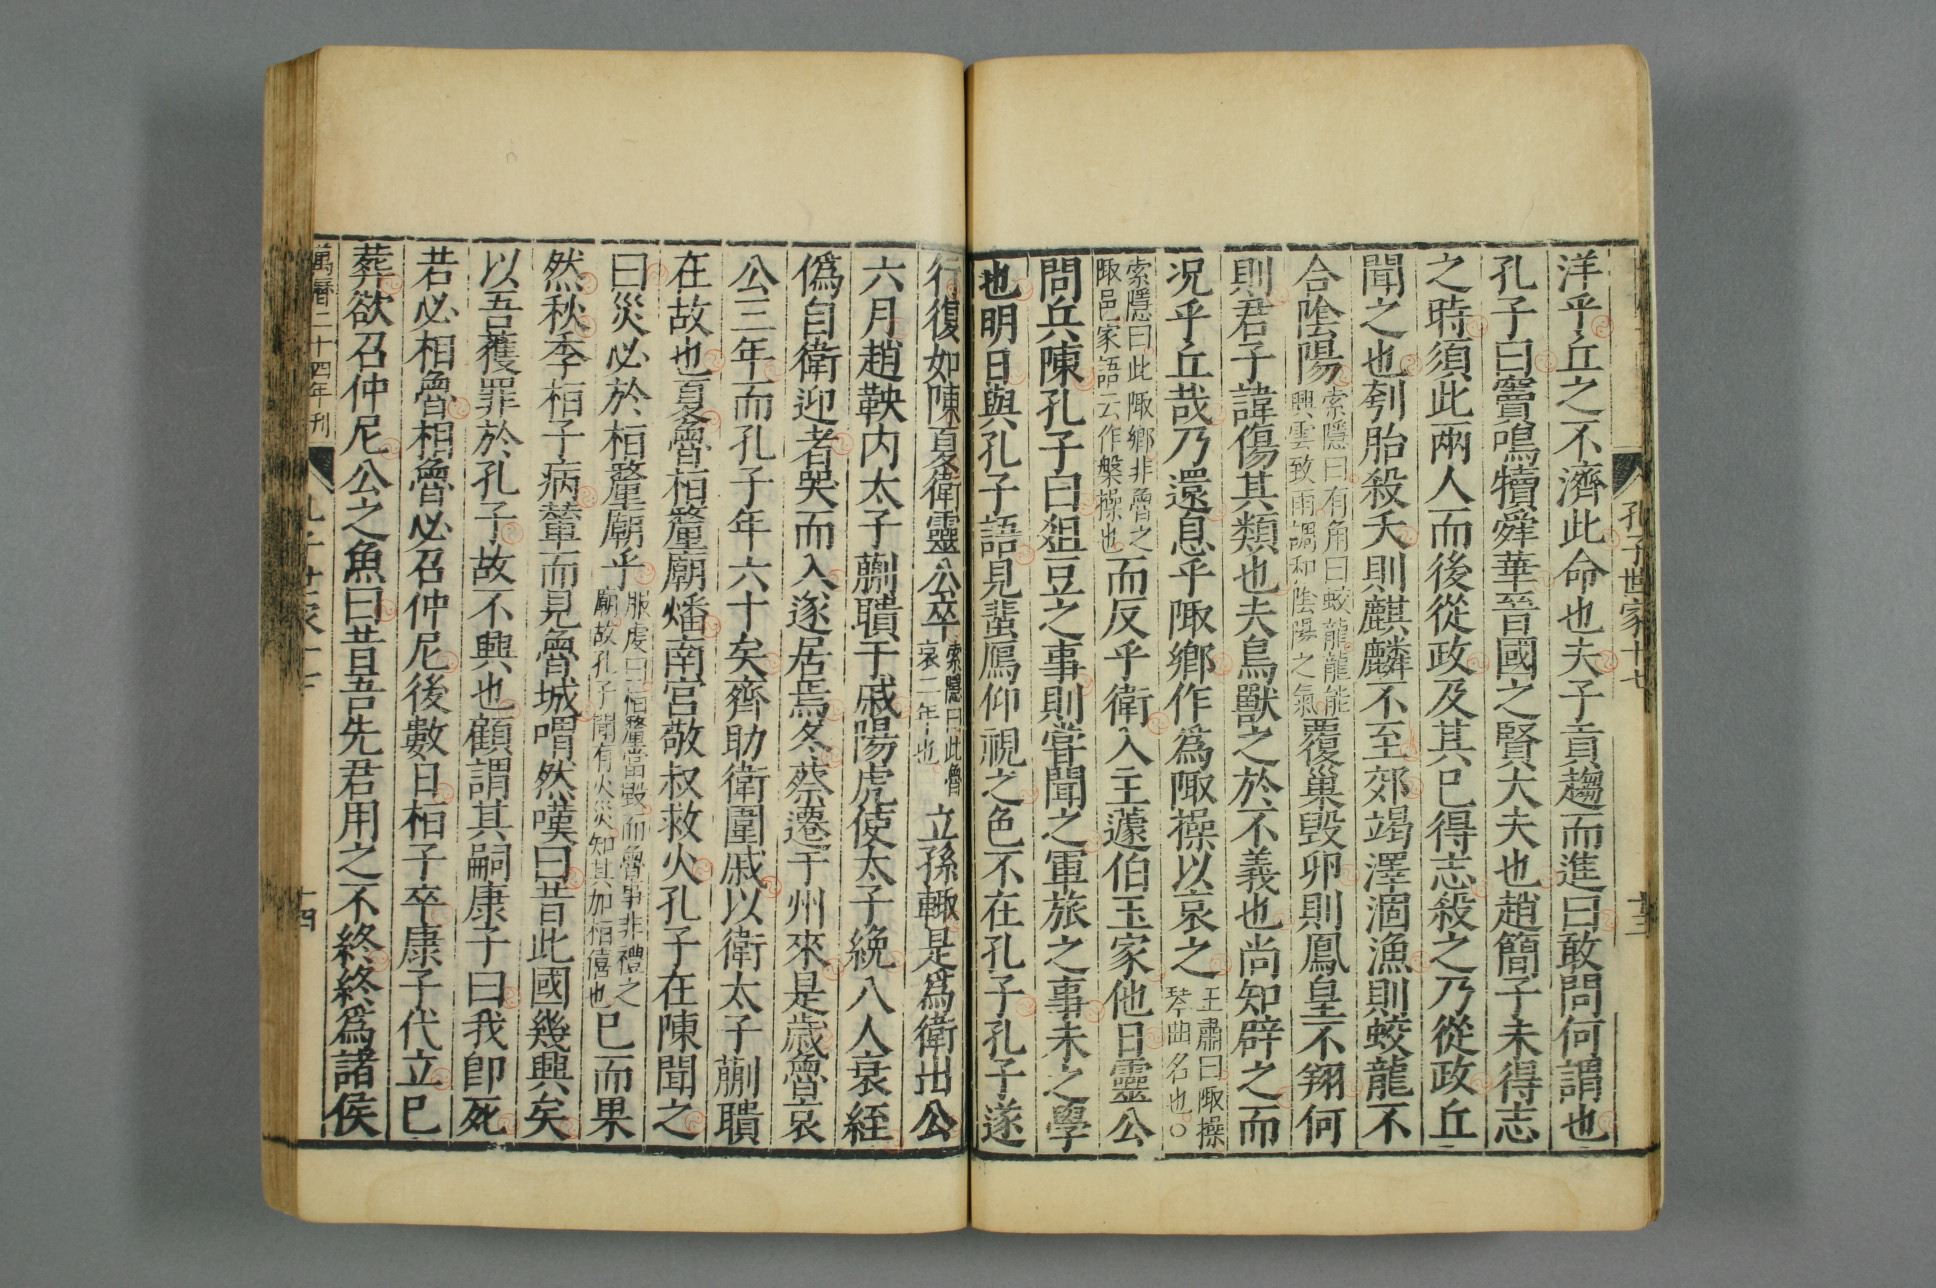 孔子世家十七
十三
洋乎丘之不濟此命也夫子貢趨而進曰敢問何謂也
孔子曰竇鳴犢舜華晉國之賢大夫也趙簡子未得志
之時須此兩人而後從政及其已得志殺之乃從政丘
聞之也刳胎殺夭則麒麟不至郊竭澤涸漁則蛟龍不
合陰陽索隱曰有角曰蛟龍龍能興雲致雨調和陰陽之氣覆巢毀卵則鳳皇不翔何
則君子諱傷其類也夫鳥獸之於不義也尚知辟之而
況乎丘哉乃還息乎陬鄉作爲陬操以哀之王肅曰陬操琴曲名也○
索隱曰此陬鄉非魯之陬邑家語云作槃操也而反乎衛入主蘧伯玉家他日靈公
問兵陳孔子曰俎豆之事則嘗聞之軍旅之事未之學
也明日與孔子語見蜚鴈仰視之色不在孔子孔子遂
行復如陳夏衛靈公卒索隱曰此魯哀二年也立孫輒是爲衛出公
六月趙鞅内太子蒯聵于戚陽虎使太子絻八人衰絰
僞自衛迎者哭而入遂居焉冬蔡遷于州來是歲魯哀
公三年而孔子年六十矣齊助衛圍戚以衛太子蒯聵
在故也夏魯桓釐廟燔南宮敬叔救火孔子在陳聞之
曰災必於桓釐廟乎服虔曰桓釐當毀而魯事非禮之廟故孔子聞有火災知其加桓僖也已而果
然秋季桓子病輦而見魯城喟然嘆曰昔此國幾興矣
以吾獲罪於孔子故不興也顧謂其嗣康子曰我卽死
若必相魯相魯必召仲尼後數日桓子卒康子代立已
葬欲召仲尼公之魚曰昔吾先君用之不終終爲諸侯
萬曆二十四年刊
孔子世家十七
十四